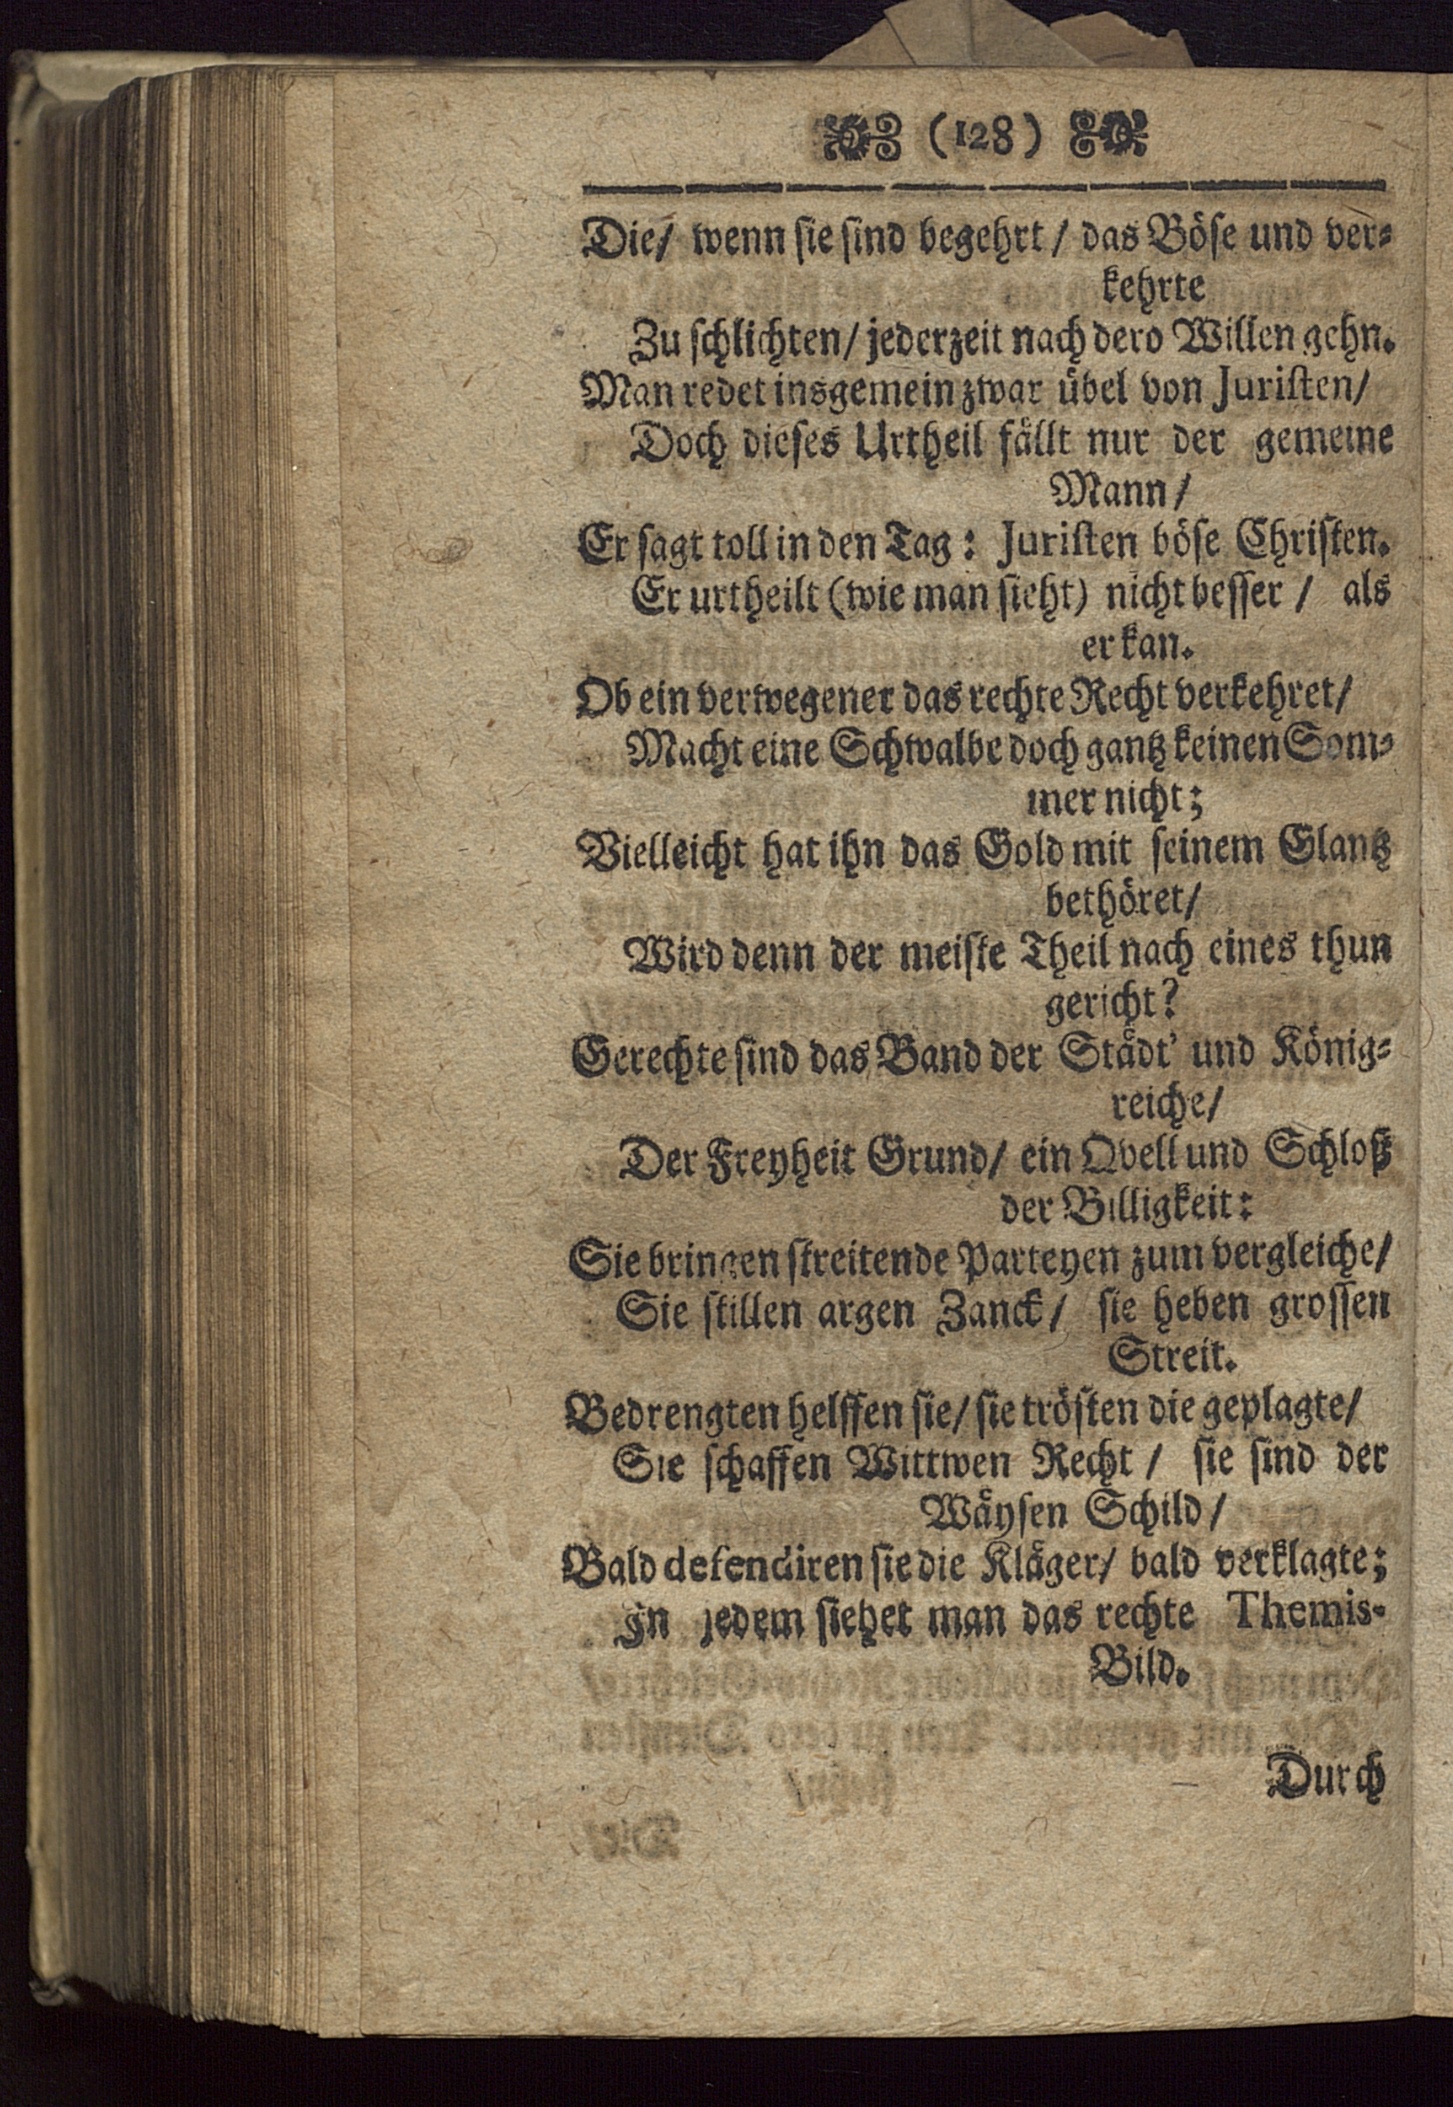 (128)
Die/ wenn sie sind begehrt/ das Böse und ver-
kehrte
Zu schlichten/ jederzeit nach dero Willen gehn.
Man redet insgemein zwar übel von Juristen/
Doch dieses Urtheil fällt nur der gemeine
Mann/
Er sagt toll in den Tag: Juristen böse Christen.
Er urtheilt (wie man sieht) nicht besser/ als
er kan.
Ob ein verwegener das rechte Recht verkehret/
Macht eine Schwalbe doch gantz keinen Som-
mer nicht;
Vielleicht hat ihn das Gold mit seinem Glantz
bethöret/
Wird denn der meiste Theil nach eines thun
gericht?
Gerechte sind das Band der Städt' und König-
reiche/
Der Freyheit Grund/ ein Qvell und Schloß
der Billigkeit:
Sie bringen streitende Parteyen zum vergleiche/
Sie stillen argen Zanck/ sie heben grossen
Streit.
Bedrengten helffen sie/ sie trösten die geplagte/
Sie schaffen Wittwen Recht/ sie sind der
Wäysen Schild/
Bald defendiren sie die Kläger/ bald verklagte;
In jedem siehet man das rechte Themis-
Bild.
Durch